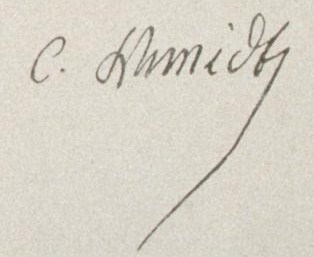 C. Schmidt